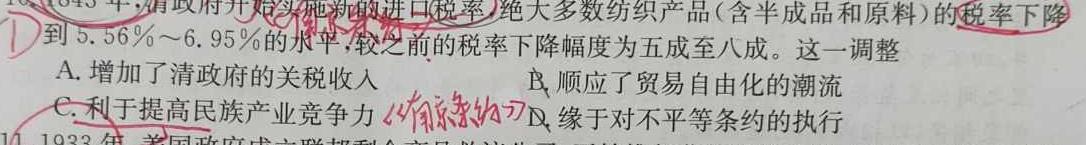 1843年,清政府开始实施新的进口税率,绝大多数纺织产品(含半成品和原料)的税率下降
D 到5.56%~6.95%的水平,较之前的税率下降幅度为五成至八成。这一调整
A. 增加了清政府的关税收入 B. 顺应了贸易自由化的潮流
C. 利于提高民族产业竞争力 《南京条约》 D. 缘于对不平等条约的执行
11. 1933年,美国政府成立联邦剩余商品救济公司